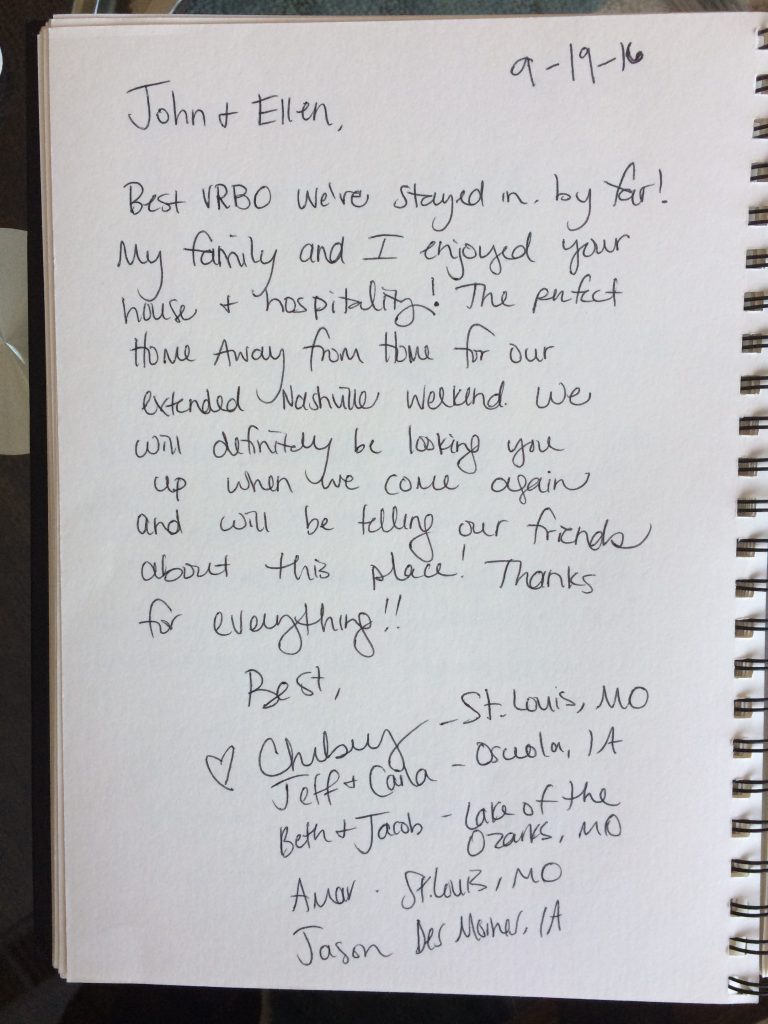 9-19-16
John + Ellen,
Best VRBO we've stayed in. by far!
My family and I enjoyed your
house + hospitality! The perfect
Home Away from Home for our
extended Nashville weekend. We
will definitely be looking you
up when we come again
and will be telling our friends
about this place! Thanks
for everything!!
Best,
♡ - St. Louis, MO
Jeff + Carla - Osceola, IA
Beth + Jacob - Lake of the
Ozarks, MO
Amar - St. Louis, MO
Jason Des Moines, IA